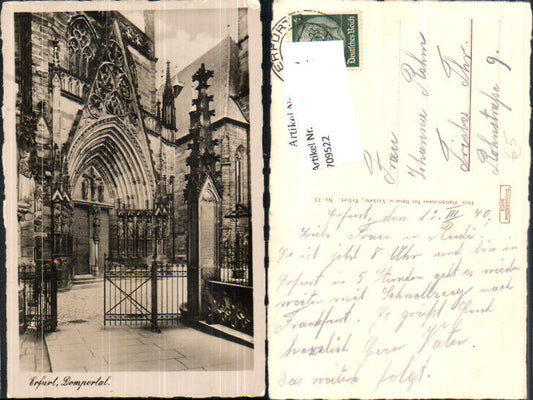 Erfurt, Domportal.
ERFURT
Deutsches Reich
Artikel Nr.
Artikel Nr.
709522
Frau
Johanna Rahm
Triebes Thr.
Bahnstraße 9.
65
Erfurt, den 12. III 40.
Liebe Frau u. Rudi,
Es ist jetzt 8 Uhr und bin in
Erfurt in 5 Stunden geht es wieder
weiter mit Schnellzug nach
Frankfurt. Es grüßt Euch
herzlich Euer Vater.
Das weitere folgt.